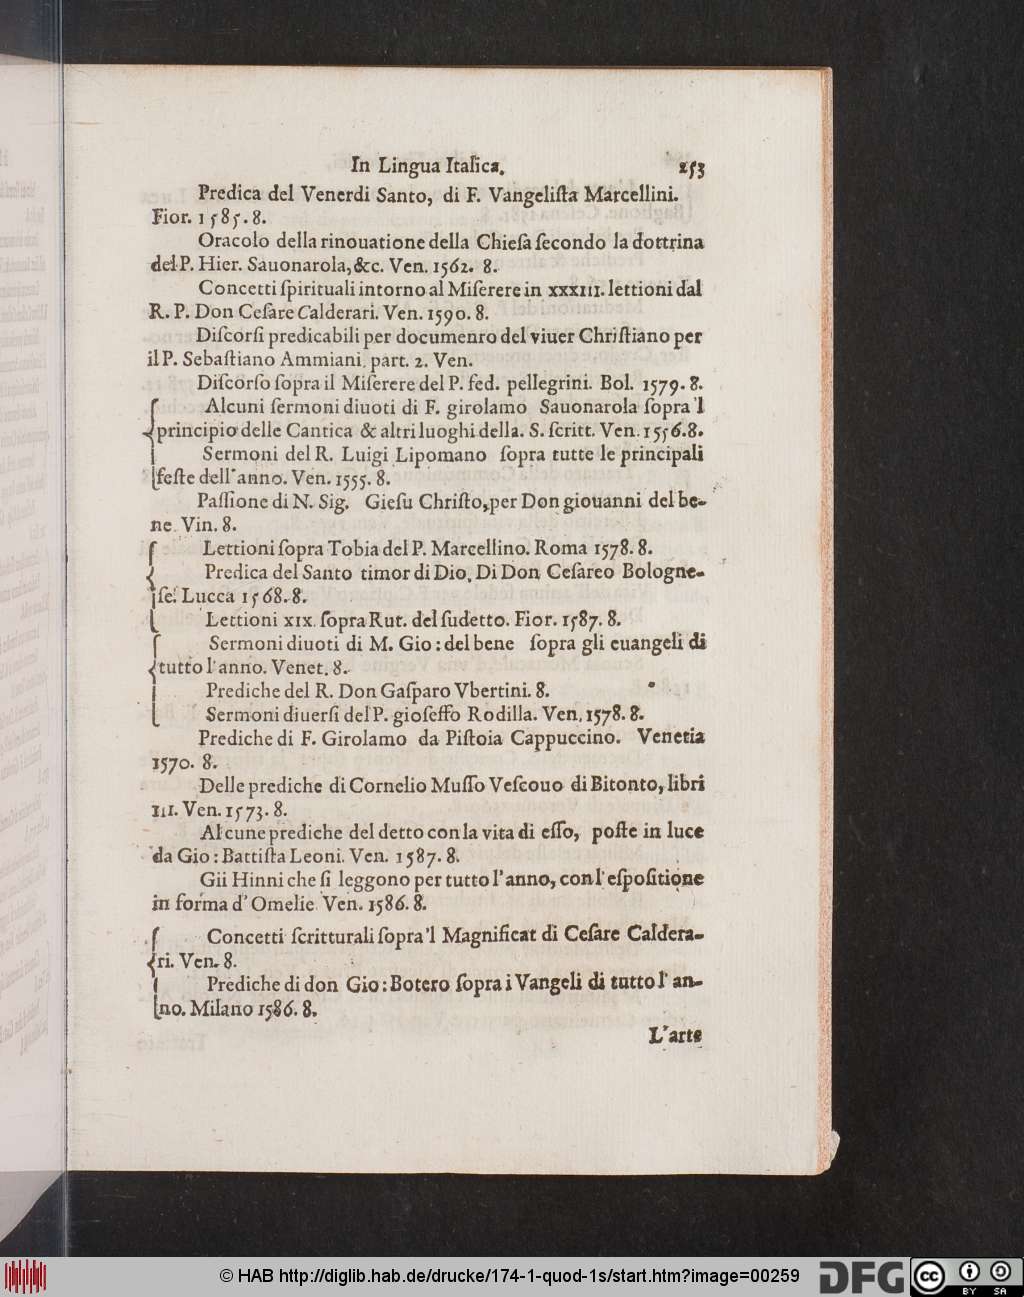 In Lingua Italica. 253
Predica del Venerdi Santo, di F. Vangeliſta Marcellini.
Fior. 1585. 8.
Oracolo della rinouatione della Chieſa ſecondo la dottrina
del P. Hier. Sauonarola, &c. Ven. 1562. 8.
Concetti ſpirituali intorno al Miſerere in xxxIII. lettioni dal
R. P. Don Ceſare Calderari. Ven. 1590. 8.
Diſcorſi predicabili per documenro del viuer Chriſtiano per
il P. Sebaſtiano Ammiani. part. 2. Ven.
Diſcorſo ſopra il Miſerere del P. fed. pellegrini. Bol. 1579. 8.
Alcuni ſermoni diuoti di F. girolamo Sauonarola ſopra'l
principio delle Cantica & altri luoghi della. S. ſcritt. Ven. 1556. 8.
Sermoni del R. Luigi Lipomano ſopra tutte le principali
feſte dell'anno. Ven. 1555. 8.
Paſſione di N. Sig. Gieſu Chriſto, per Don giouanni del be-
ne. Vin. 8.
Lettioni ſopra Tobia del P. Marcellino. Roma 1578. 8.
Predica del Santo timor di Dio, Di Don Ceſareo Bologne-
ſe. Lucca 1568. 8.
Lettioni xıx. ſopra Rut. del ſudetto. Fior. 1587. 8.
Sermoni diuoti di M. Gio: del bene ſopra gli euangeli di
tutto l'anno. Venet. 8.
Prediche del R. Don Gaſparo Vbertini. 8.
Sermoni diuerſi del P. gioſeffo Rodilla. Ven. 1578. 8.
Prediche di F. Girolamo da Piſtoia Cappuccino. Venetia
1570. 8.
Delle prediche di Cornelio Muſſo Veſcouo di Bitonto, libri
III. Ven. 1573. 8.
Alcune prediche del detto con la vita di eſſo, poſte in luce
da Gio: Battiſta Leoni. Ven. 1587. 8.
Gii Hinni che ſi leggono per tutto l'anno, con l'eſpoſitione
in forma d'Omelie. Ven. 1586. 8.
Concetti ſcritturali ſopra'l Magnificat di Ceſare Caldera-
ri. Ven. 8.
Prediche di don Gio: Botero ſopra i Vangeli di tutto l'an-
no. Milano 1586. 8.
L'arte
© HAB http://diglib.hab.de/drucke/174-1-quod-1s/start.htm?image=00259
DFG
cc BY SA